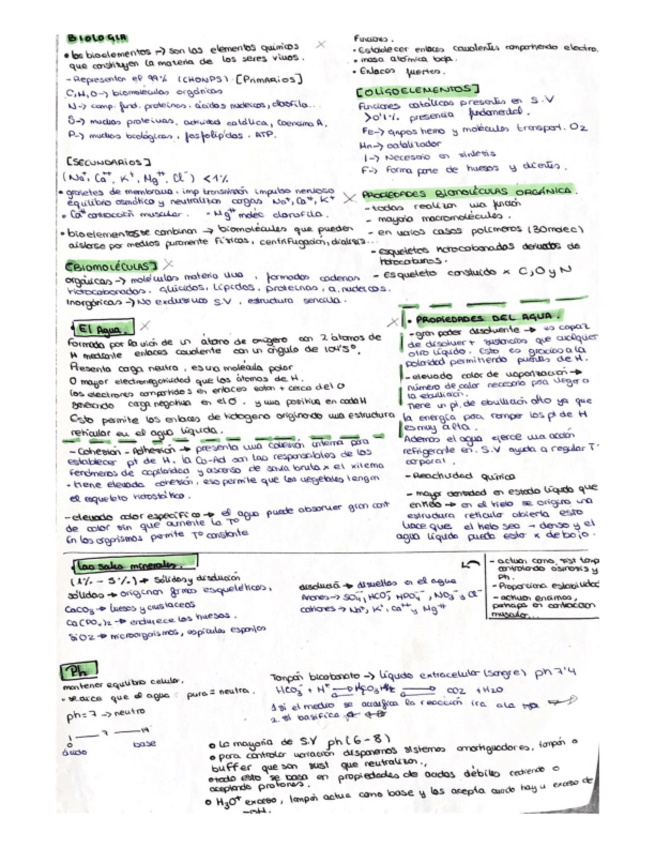 BIOLOGIA
• los bioelementos → son los elementos químicos
que constituyen la materia de los seres vivos.
- Representan el 99% (CHONPS). [Primarios]
C,H,O → biomoléculas orgánicas
N → comp. fund. proteínas. ácidos nucleicos, clorofila...
S → muchas proteínas, actividad catálica, Coenzima A.
P → muchas biológicas, fosfolípidos. ATP.
[SECUNDARIOS]
(Na+, Ca++, K+, Mg++, Cl-) <1%
• gradientes de membrana. imp transmisión impulso nervioso
equilibrio osmótico y neutralizan cargas Na+, Ca++, K+
• Ca++ contracción muscular. - Mg++ moléc clorofila.
• bioelementos se combinan → biomoléculas que pueden
aislarse por medios puramente físicos, centrifugación, diálisis...
[BIOMOLÉCULAS]
orgánicas → moléculas materia viva, formados cadenas
hidrocarbonadas. glúcidos, lípidos, proteínas, a. nucleicos.
Inorgánicos → No exclusivos S.V, estructura sencilla.
Funciones.
• Establecer enlaces covalentes compartiendo electro.
• masa atómica baja.
• Enlaces fuertes.
[OLIGOELEMENTOS]
Funciones catalíticas presentes en S.V
>0'1% presencia fundamental.
Fe → grupos hemo y moléculas transport. O2
Mn → catalizador
I → Necesario en síntesis
F → forma parte de huesos y dientes.
PROPIEDADES BIOMOLÉCULAS ORGÁNICA.
- todas realizan una función
- mayoría macromoléculas.
- en varios casos polímeros (30 moléc)
- esqueletos hidrocarbonados derivados de
hidrocarburos.
- esqueleto constituido x C, O y N
El Agua.
Formada por la unión de un átomo de oxígeno con 2 átomos de
H mediante enlaces covalente con un ángulo de 104'5°.
Presenta carga neutra, es una molécula polar
O mayor electronegatividad que los átomos de H.
los electrones compartidos en enlaces están + cerca del O
generando carga negativa en el O. y una positiva en cada H
Esto permite los enlaces de hidrogeno originando una estructura
reticular en el agua líquida.
- Cohesión - Adhesión → presenta una cohesión interna para
establecer pt de H. la Co-Ad son las responsables de los
fenómenos de capilaridad y ascenso de savia bruta x el xilema
• tiene elevada cohesión, eso permite que los vegetales tengan
el esqueleto hidrostático.
- elevado calor específico → el agua puede absorber gran cant
de calor sin que aumente la Tº
En los organismos permite Tº constante
• PROPIEDADES DEL AGUA.
- gran poder disolvente → es capaz
de disolver + sustancias que cualquier
otro líquido. Esto es gracias a la
polaridad permitiendo puentes de H.
- elevado calor de vaporización →
número de calor necesario para llegar a
la ebullición.
Tiene un pt. de ebullición alto ya que
la energía para romper los pt de H
es muy alta.
Además el agua ejerce una acción
refrigerante en S.V ayuda a regular Tº
corporal.
- Reactividad química
- mayor densidad en estado líquido que
→ en el hielo se origina una
estructura reticular abierta esto
hace que el hielo sea - denso y el
agua líquida pueda estar x debajo.
Las sales minerales.
(1% - 5%) → Sólidas y disolución
sólidas → originan formas esqueléticas,
CaCO3 → huesos y crustáceos
Ca(PO4)2 → endurece los huesos.
SiO2 → microorganismos, espículas esponjas
disolución → disueltas en el agua
Aniones → SO4, HCO3-, HPO4--, NO3- y Cl-
cationes → Na+, K+, Ca++ y Mg++
- actúan como sist tamp
controlando osmosis y
Ph.
- Proporciona estabilidad
- actúan enzimas,
participa en contracción
muscular...
Ph
mantener equilibrio celular.
• se dice que el agua pura = neutra.
ph = 7 → neutro
1 — 7 — 14
0
ácido base
Tampón bicarbonato → líquido extracelular (sangre) ph 7'4
HCO3- + H+ H2CO3 CO2 + H2O
1 si el medio se acidifica la reacción irá a la →
2. si basifica ←
• La mayoría de S.V ph (6-8)
• para controlar variación disponemos sistemas amortiguadores, tampón o
buffer que son sust que neutralizan.
• todo esto se basa en propiedades de ácidos débiles cediendo o
aceptando protones.
• H3O+ exceso, tampón actúa como base y los acepta cuando hay u exceso de
-OH.